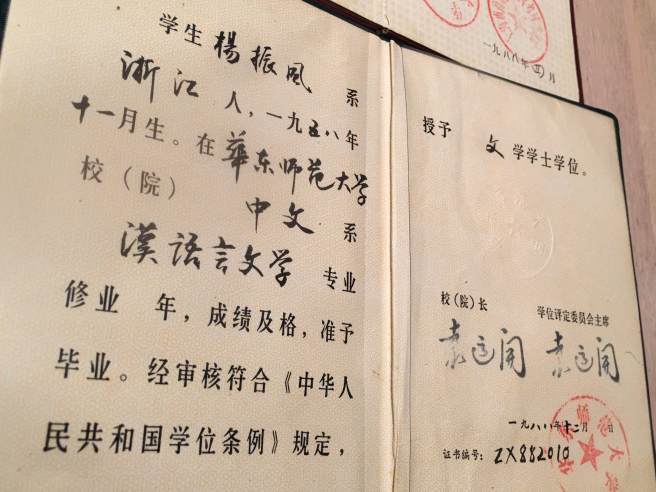 学生楊振風 系
浙江 人，一九五八年
十一月生。在華东师范大学
校（院） 中文 系
漢语言文学 专业
修业 年，成绩及格，准予
毕业。经审核符合《中华人
民共和国学位条例》规定，
授予 文学学士学位。
校（院）长 学位评定委员会主席
袁运开 袁运开
一九八八年十二月 日
证书编号：ZX882010
一九八八年 月